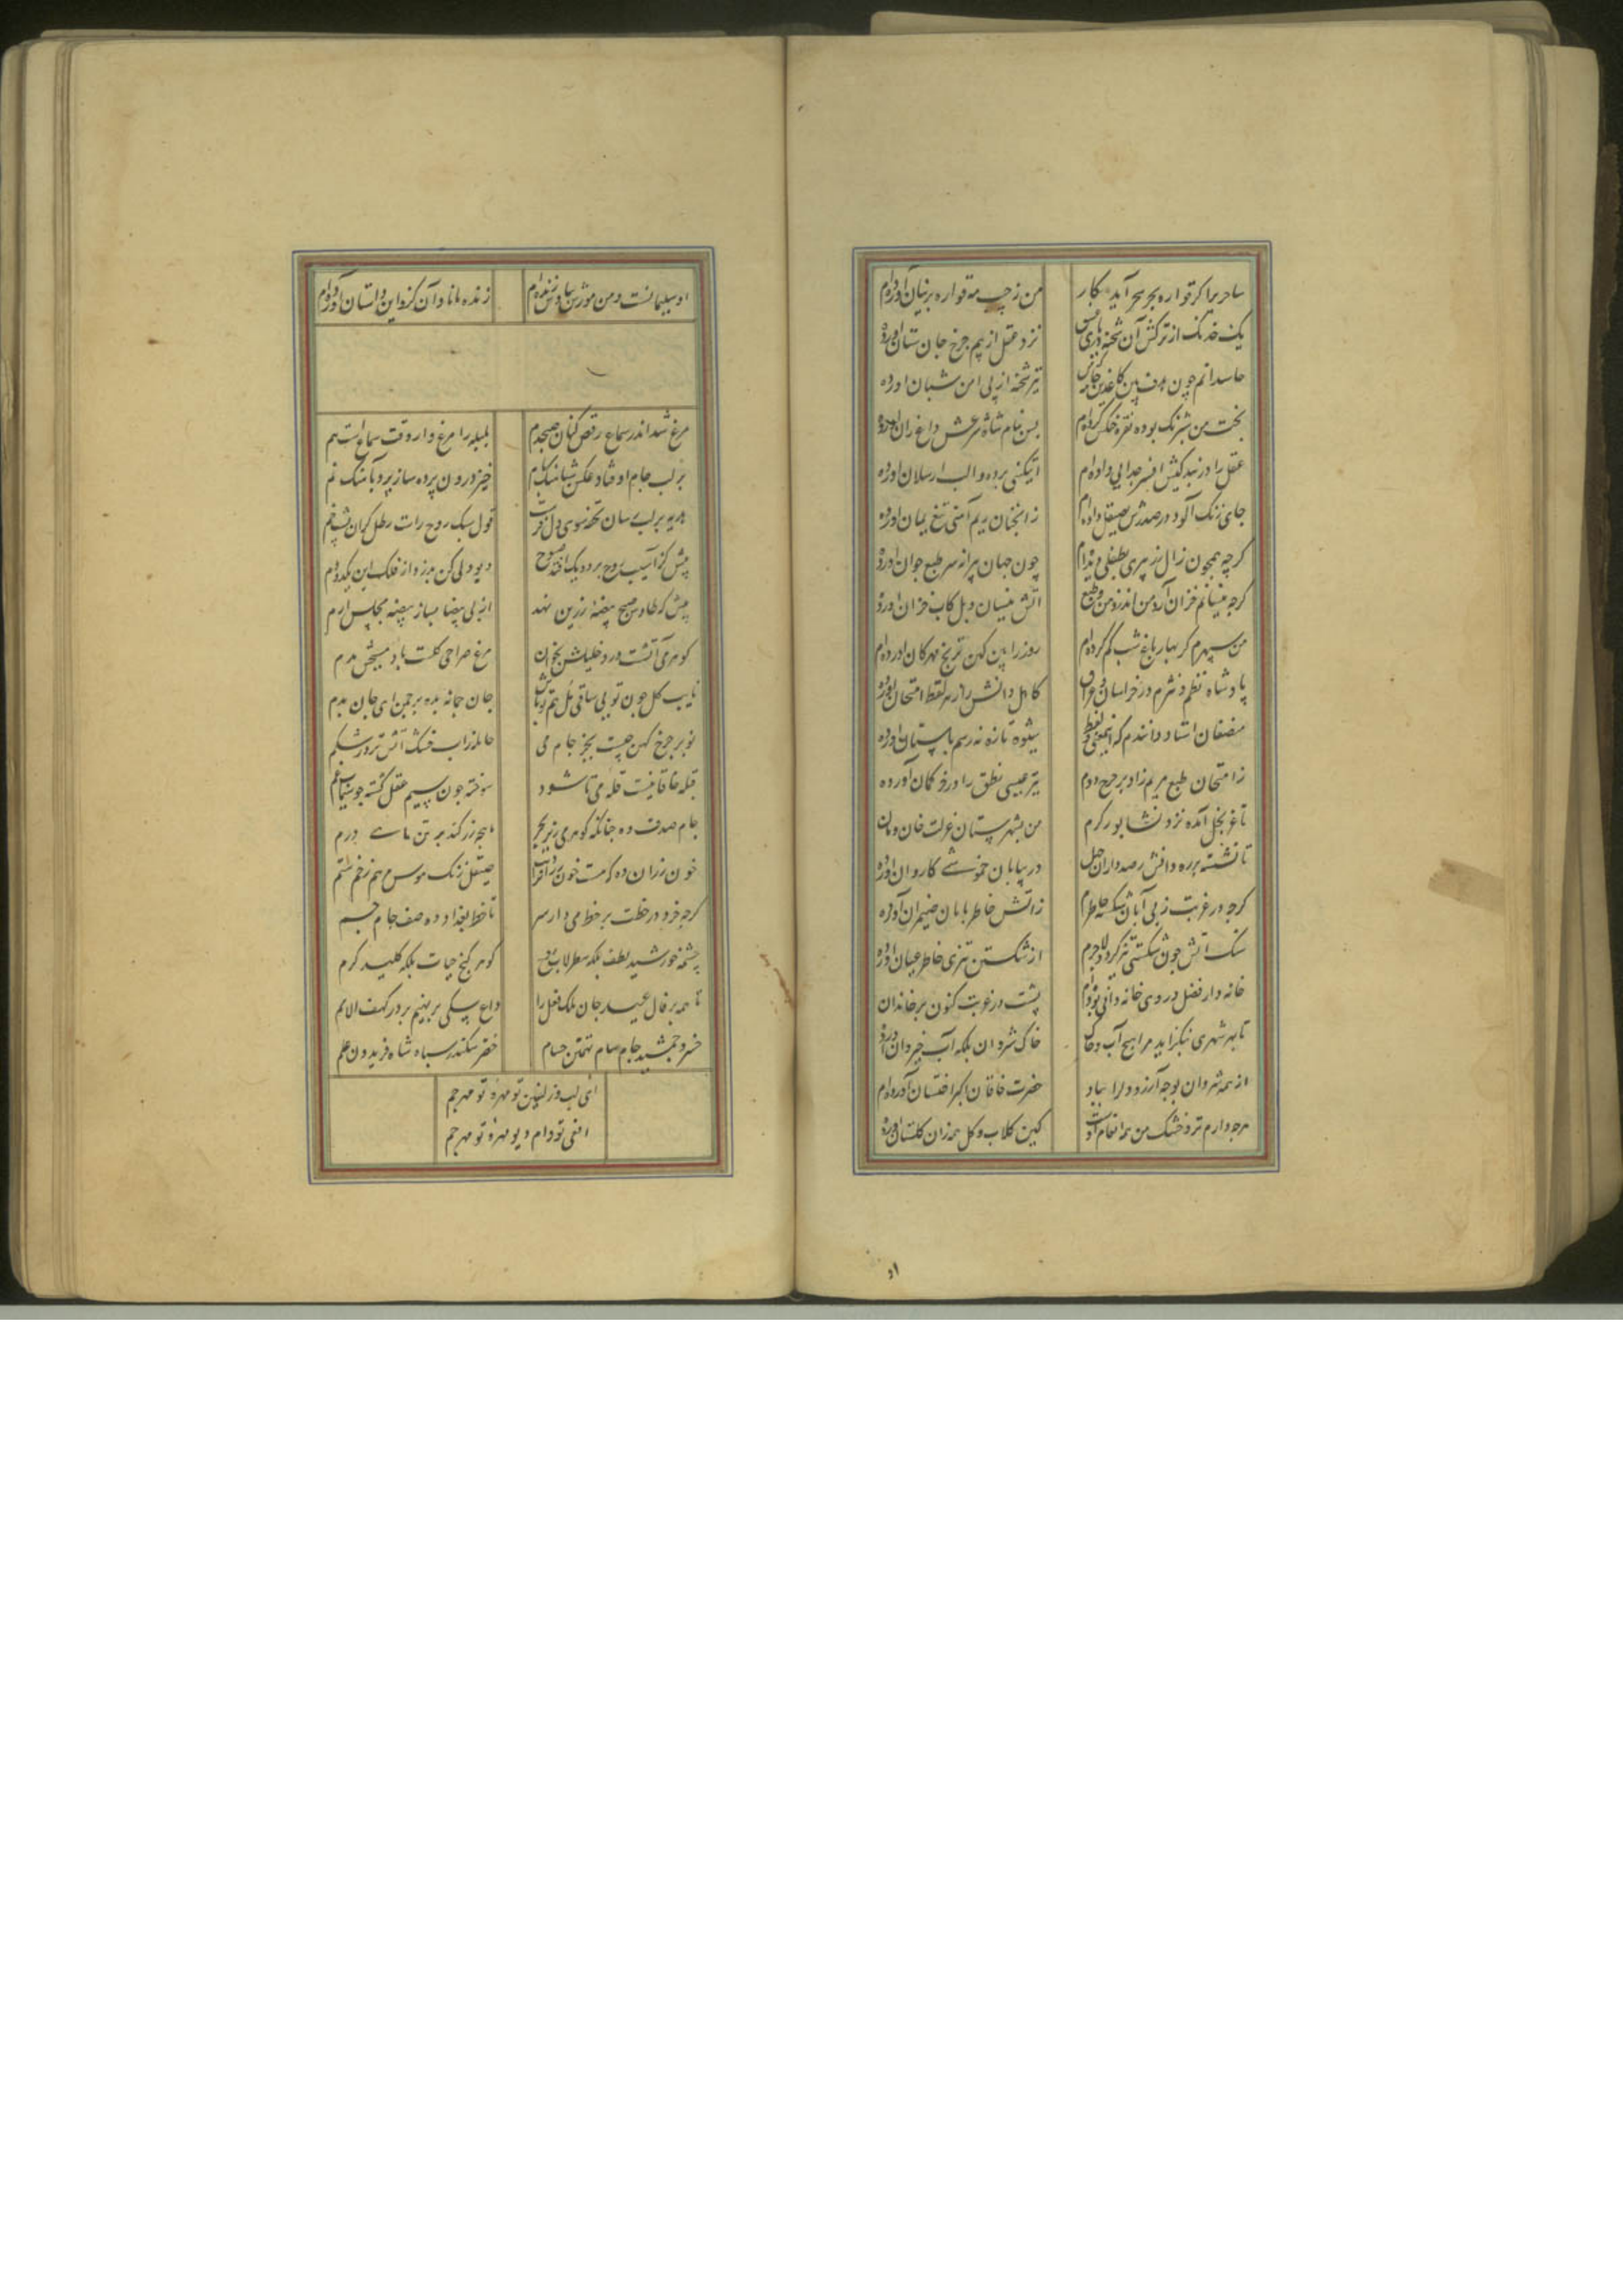 ساحری را کر قواره بحر سحر آید بکار
من ز جیب مه قواره پرنیان آورده‌ام
یک خدنگ از ترکش آن شحنه دریای عشق
نزد عقل از بیم چرخ جان ستان آورده
حاسدانم چون هدف بین کاغذین جامه
تیر شحنه از پی امن شبان آورده
بخت من شبرنگ بوده نقره خنکش کرده‌ام
پس بنام شاه شرعش داغ ران آورده
عقل را در بندگیش افسر خدایی داده‌ام
آتیکینی برده و الب ارسلان آورده
جای زنگ آلود در صدرش بصیقل داده‌ام
زانچنان ریم آهنی تیغ یمان آورده
کرچه همچون زال زر پیری بطفلی دیده‌ام
چون جهان پیرانه سر طبع جوان آورده
کرچه نیسانم خزان آرد من اندر ذوق طبع
آتش نیسان و بل کاب خزان آورده
من سپهرم کر بهار باغ شب کم کرده‌ام
روز را بین کهن ترنج مهرکان آورده‌ام
پادشاه نظم و نثرم در خراسان و عراق
کاهل دانش را ز هر لفظ امتحان آورده
منصفان استاد دانندم که از معنی و لفظ
شیوه تازه نه رسم باستان آورده
ز امتحان طبع مریم زاد بر چرخ دوم
تیر عیسی نطق را در خر کمان آورده
تا غز بخل آمده نزد نشابور کرم
من بشهرستان عزلت خان و مان
تا نشسته بر ره دانش رصدداران جهل
در بیابان خموشی کاروان آورده
کرچه در غربت ز بی آبان شکسته خاطرم
ز آتش خاطر بابان ضیمران آورده
سنک آتش چون شکستی تیز کردد لاجرم
از شکستن تیزی خاطر عیان آورده
خانه دار فضل و روی خانه دانی بوده‌ام
پشت در غربت کنون بر خاندان
تا بهر شهری بنکزاید مرا هیچ آب و خاک
خاک شروان بلکه آب خیروان آورده
از همه شروان بوجه آرزو دل را بیاد
حضرت خاقان اکبر اخستان آورده‌ام
هرچه دارم تر و خشک من همه انعام اوست
کین کلاب و کل همه زان کلستان آورده
او سلیمانست و من مورش بیادش زنده‌ام
زنده ماناد آن کزو این داستان آورده‌ام
مرغ شد اندر سماع رقص کنان صبحدم
بلبله را مرغ وار وقت سماع است هم
بر لب جام اوفتاد عکس شباهنک بام
خیز درون پرده ساز پرده بآهنک نم
هدیه بر لب رسان تحفه سوی دل فرست
قول سبک روح راست رطل کران پشت خم
پیش کز آسیب روح بر دود یک افق صبوح
دیو دلی کن بدزد از فلک این یکدودم
پیش که طاوس صبح بیضه زرین نهد
از می بیضا بساز بیضه مجلس ارم
کوهر آتشست در دو خلیلش بخوان
مرغ صراحی کلست باد مسیحش بدم
نایب کل چون تویی ساقی مل هم تو باش
جان چمانه بده بر چمن ای جان بدم
نو بر چرخ کهن چیست بجز جام می
حامله ز آب خشک آتش تر در شکم
قبله خاقانیست قله می تا شود
سوخته چون سیم عقل کشته چو سیماب غم
جام صدف ده چنانکه کوهر می زیر بحر
ماهچه زر کند بر تن ماهی درم
خون رزان ده که هست خون روانرا دیت
صیقل زنک هوس مرهم زخم ستم
کرچه خرد در خطت بر خط می دار سر
تا خط بغداد ده صف جام جم
چشمه خورشید لطف بلکه سطرلاب روح
کوهر کنج حیات بلکه کلید کرم
تا همه بر فال عید جان ملک فعل را
داغ سکی بر نهیم بر در کهف الامم
خسرو جمشید جام سام تهمتن حسام
خضر سکندر سپاه شاه فریدون علم
ای لب و زلفین تو مهره و تو مهر جم
افعی تو دام دیو مهره تو مهر جم
او